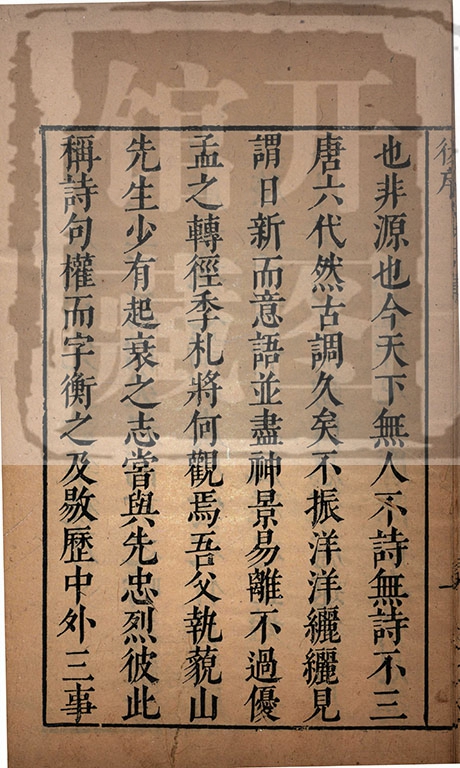 後序
也非源也今天下無人不詩無詩不三
唐六代然古調久矣不振洋洋纚纚見
謂日新而意語並盡神景易離不過優
孟之轉徑季札將何觀焉吾父執藐山
先生少有起衰之志嘗與先忠烈彼此
稱詩句權而字衡之及敭歷中外三事